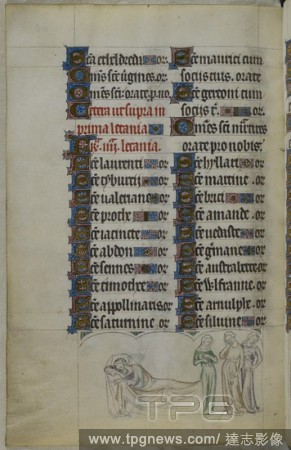 Sca etheldreda. or
Omēs sce uigines. or
Omēs sci. orate. p. no
Cetera ut supra in
prima letania
Fr̄. iiij. letania.
Sce laurenti or
Sce tyburti or
Sce ualeriane or
Sce prothe or
Sce iacincte or
Sce abdon or
Sce sennes or
Sce timothee or
Sce appollinaris or
Sce saturnine . or
Sce maurici cum
sociis tuis. orate
Sce gereoni cum
sociis t̄. or
Omēs sci martires
orate pro nobis.
Sce hyllari or
Sce martine . or
Sce brici or
Sce amande . or
Sce uedaste or
Sce g̃mane or
Sce austraberte or
Sce wlfranne. or
Sce arnulphe. or
Sce siluine . or
TPG
www.tpgnews.com/ 達志影像